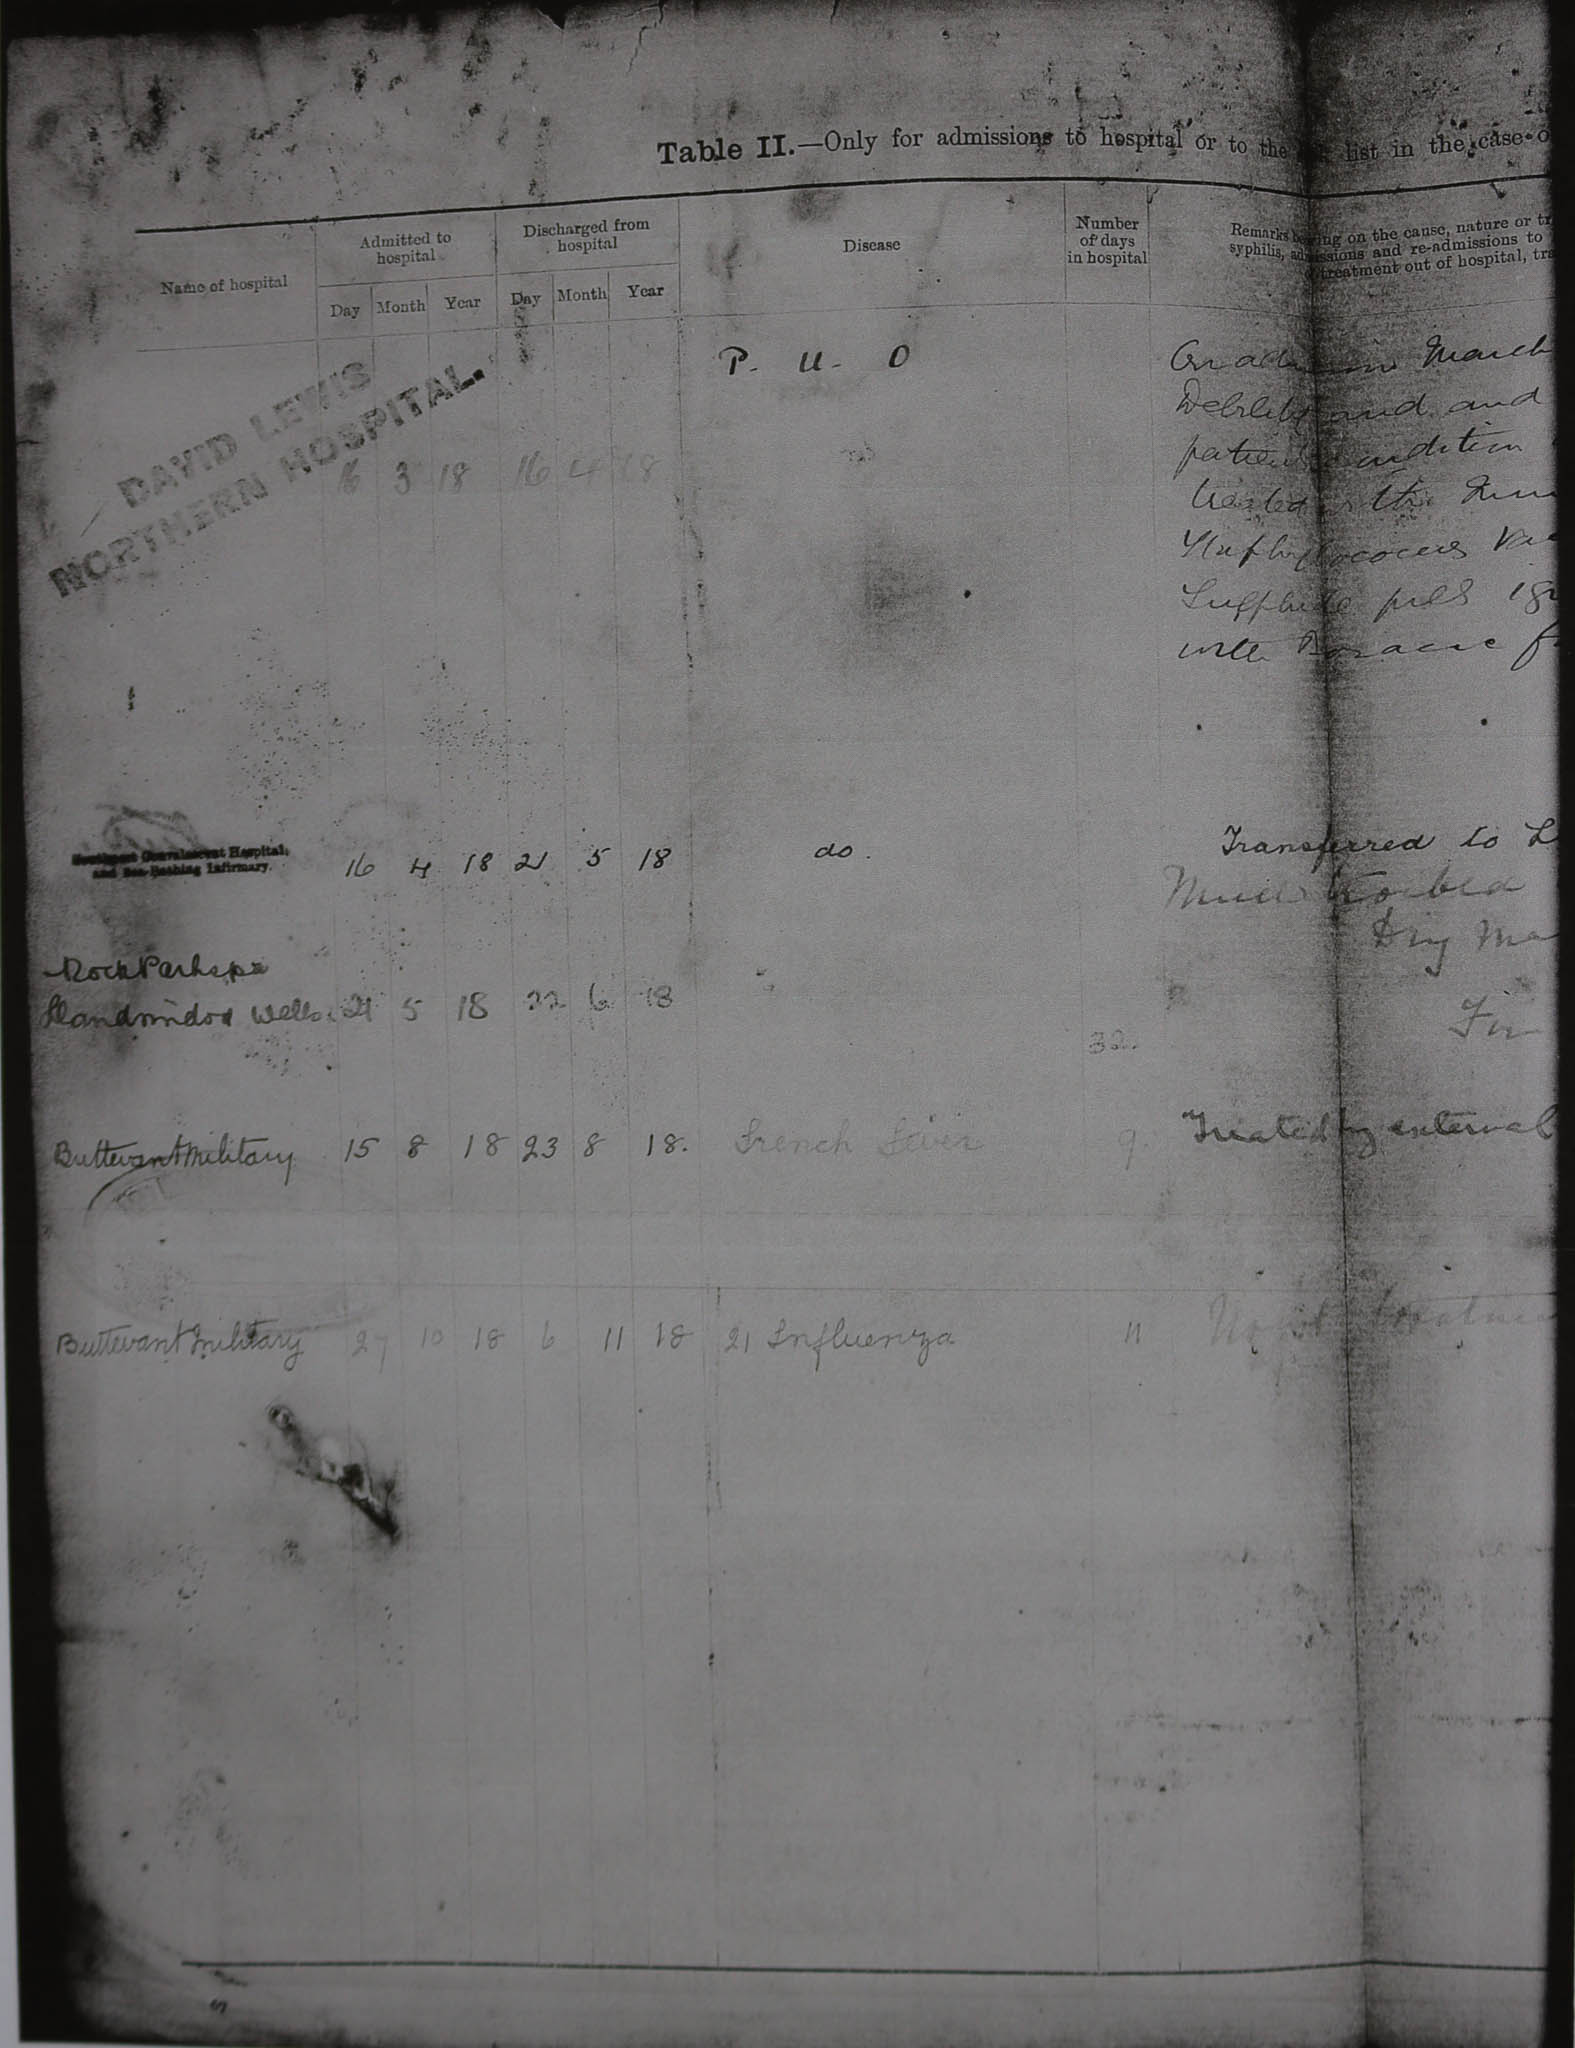 Table II.—Only for admissions to hospital or to the list in the case o
Name of hospital
Admitted to hospital
Discharged from hospital
Disease
Number of days in hospital
Remarks bearing on the cause, nature or tr
syphilis, admissions and re-admissions to
treatment out of hospital, tra
Day Month Year Day Month Year
DAVID LEWIS
NORTHERN HOSPITAL.
16 3 18 16 4 18 P. U. O
On admission March
Debility and and
patients condition
treated with
Staphylococcus Vac
Sulphide pills 1gr
with Boracic f
Southport Convalescent Hospital,
and Sea-Bathing Infirmary.
16 4 18 21 5 18 do.
Transferred to L
Dry Ma
Rock Park spa
Llandrindod Wells. 21 5 18 22 6 18 32.
Buttevant Military 15 8 18 23 8 18. French Fever 9. Treated by external
Buttevant Military 27 10 18 6 11 18 21 Influenza 11